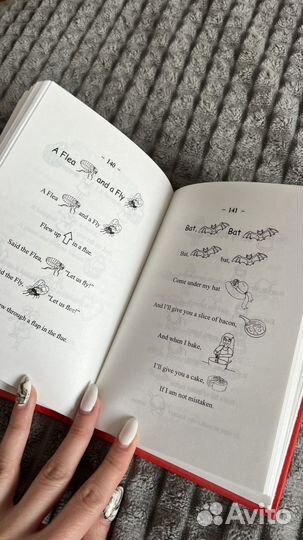 – 140 –
A Flea and a Fly
A Flea
and a Fly
Flew up in a flue.
Said the Flea, "Let us fly!"
the Fly, "Let us flee!"
through a flap in the flue.
– 141 –
Bat, Bat
Bat, bat,
Come under my hat
And I'll give you a slice of bacon,
And when I bake,
I'll give you a cake,
If I am not mistaken.
Avito